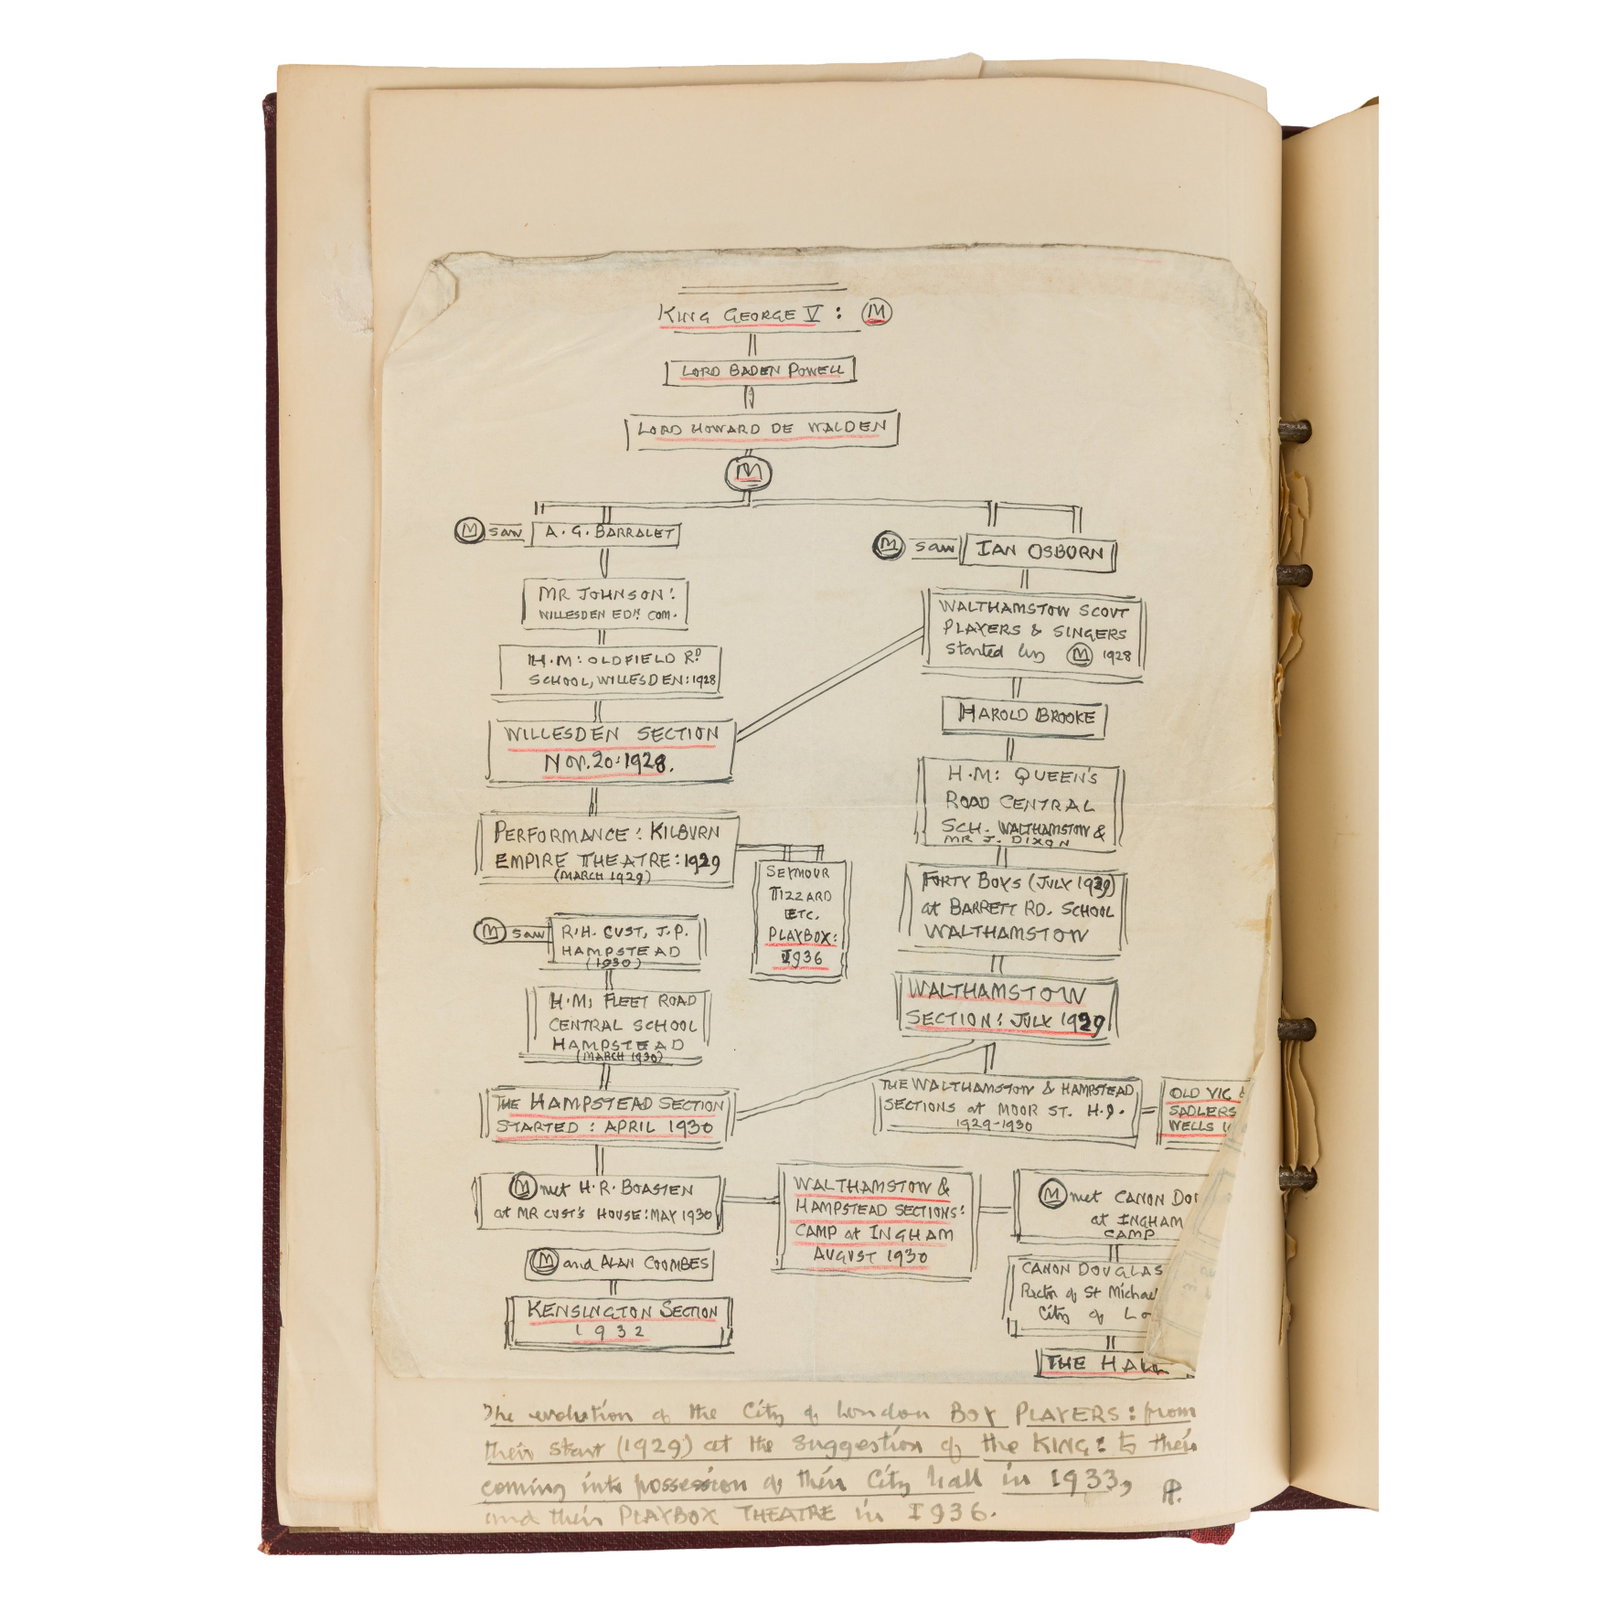 KING GEORGE V : M
LORD BADEN POWELL
LORD HOWARD DE WALDEN
M
M saw A. G. BARRALET
MR JOHNSON:
WILLESDEN EDN. COM.
H.M: OLDFIELD RD
SCHOOL, WILLESDEN: 1928
WILLESDEN SECTION
NOV. 20: 1928.
PERFORMANCE: KILBURN
EMPIRE THEATRE: 1929
(MARCH 1929)
SEYMOUR
TIZZARD
ETC.
PLAYBOX:
1936
M saw R.H. CUST, J.P.
HAMPSTEAD
(1930)
H.M: FLEET ROAD
CENTRAL SCHOOL
HAMPSTEAD
(MARCH 1930)
THE HAMPSTEAD SECTION
STARTED: APRIL 1930
M met H.R. BOASTEN
at MR CUST'S HOUSE: MAY 1930
M and ALAN COOMBES
KENSINGTON SECTION
1932
M saw IAN OSBORN
WALTHAMSTOW SCOUT
PLAYERS & SINGERS
started by M 1928
HAROLD BROOKE
H.M: QUEEN'S
ROAD CENTRAL
SCH. WALTHAMSTOW &
MR J. DIXON
FORTY BOYS (JULY 1929)
at BARRETT RD. SCHOOL
WALTHAMSTOW
WALTHAMSTOW
SECTION: JULY 1929
THE WALTHAMSTOW & HAMPSTEAD
SECTIONS at MOOR ST. H.Q.
1929-1930
OLD VIC
SADLERS
WELLS
WALTHAMSTOW &
HAMPSTEAD SECTIONS:
CAMP at INGHAM
AUGUST 1930
M met CANON DOU
at INGHAM
CAMP
CANON DOUGLAS
Rector of St Michae
City of Lo
THE HALL
The evolution of the City of London BOY PLAYERS: from
their start (1929) at the suggestion of the KING: to their
coming into possession of their City hall in 1933,
and their PLAYBOX THEATRE in 1936.